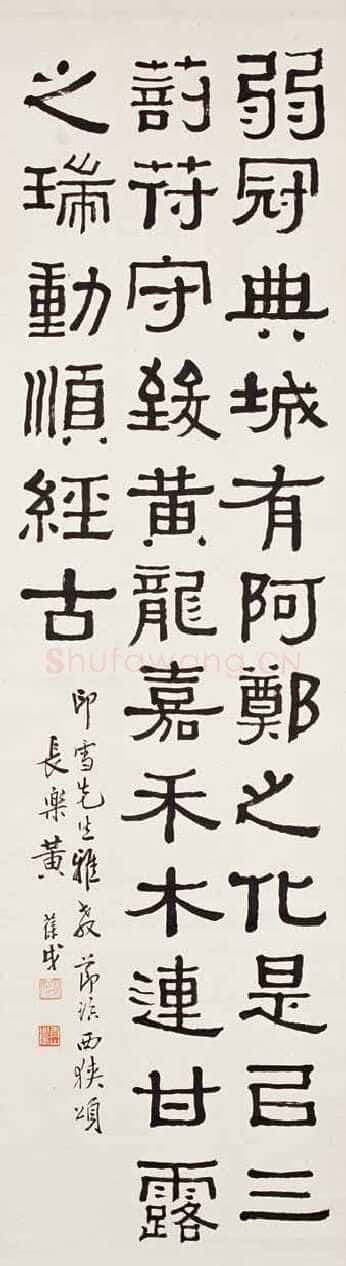 弱冠典城有阿鄭之化是㠯三
剖苻守致黃龍嘉禾木連甘露
之瑞動順經古
印雪先生雅教節臨西狹頌
長樂黃葆戉
Shufawang.CN